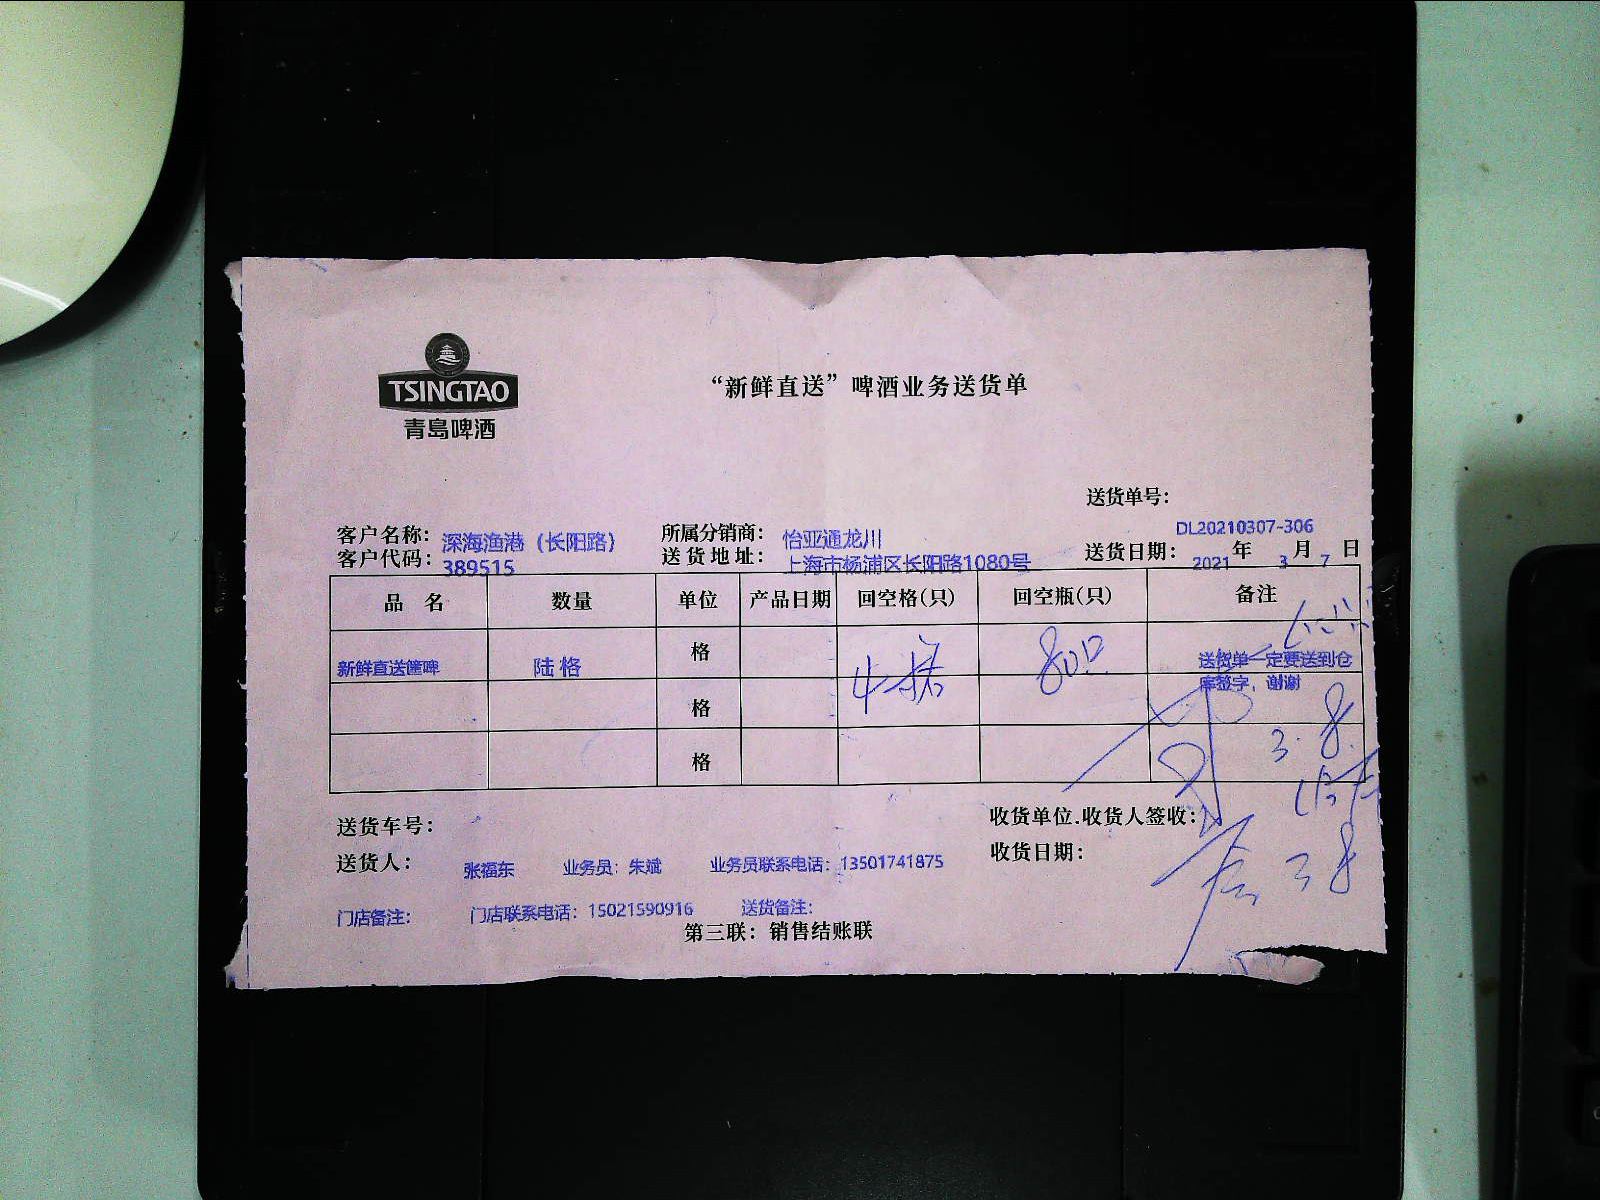 TSINGTAO
青島啤酒
“新鲜直送”啤酒业务送货单
送货单号：
DL20210307-306
客户名称：深海渔港（长阳路） 所属分销商：怡亚通龙川
客户代码：389515 送货地址：上海市杨浦区长阳路1080号 送货日期：2021年3月7日
品名 数量 单位 产品日期 回空格(只) 回空瓶(只) 备注
新鲜直送箧啤 陆格 格 4格 80只 送货单一定要送到仓
库签字，谢谢
格
3.8
格
送货车号： 收货单位.收货人签收：
送货人： 张福东 业务员：朱斌 业务员联系电话：13501741875 收货日期：
3 8
门店备注： 门店联系电话：15021590916 送货备注：
第三联：销售结账联